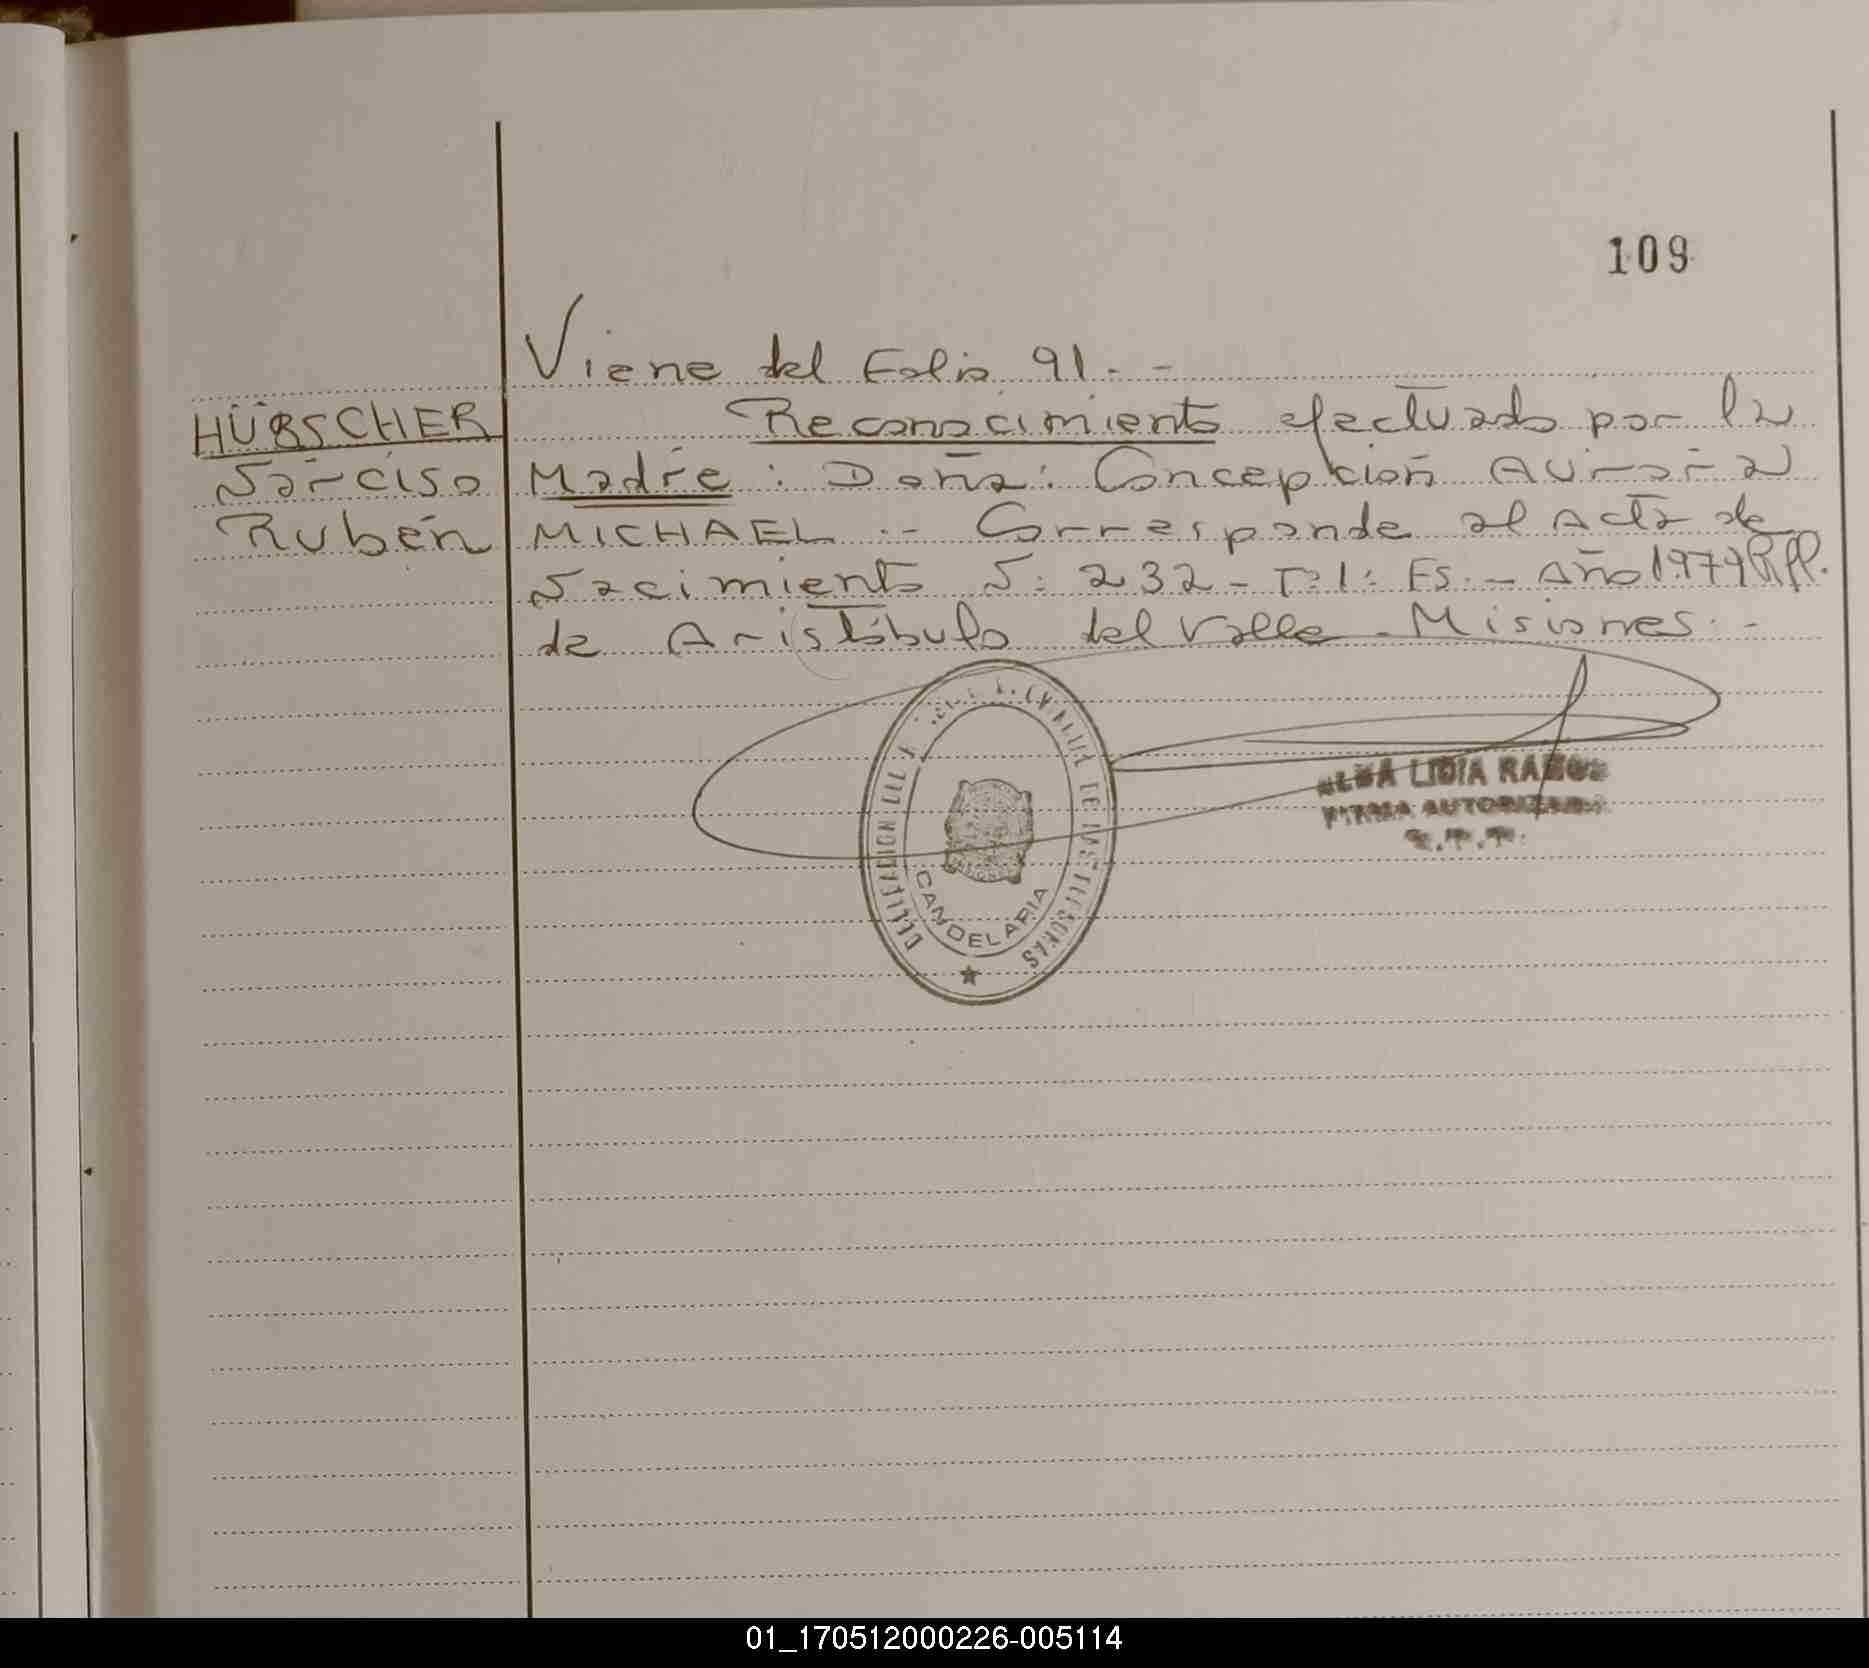 109
Viene del Folio 91. -
HÜBSCHER
Narciso
Rubén
Reconocimiento efectuado por la
Madre : Doña : Concepción Aurora
MICHAEL .- Corresponde al Acta de
Nacimiento N: 232 - Tº 1: Es. - Año 1979
de Aristóbulo del Valle - Misiones. -
DELEGACION DEL
DE LAS PERSONAS
CANDELARIA
LIDIA RAMOS
FIRMA AUTORIZADA
01_170512000226-005114